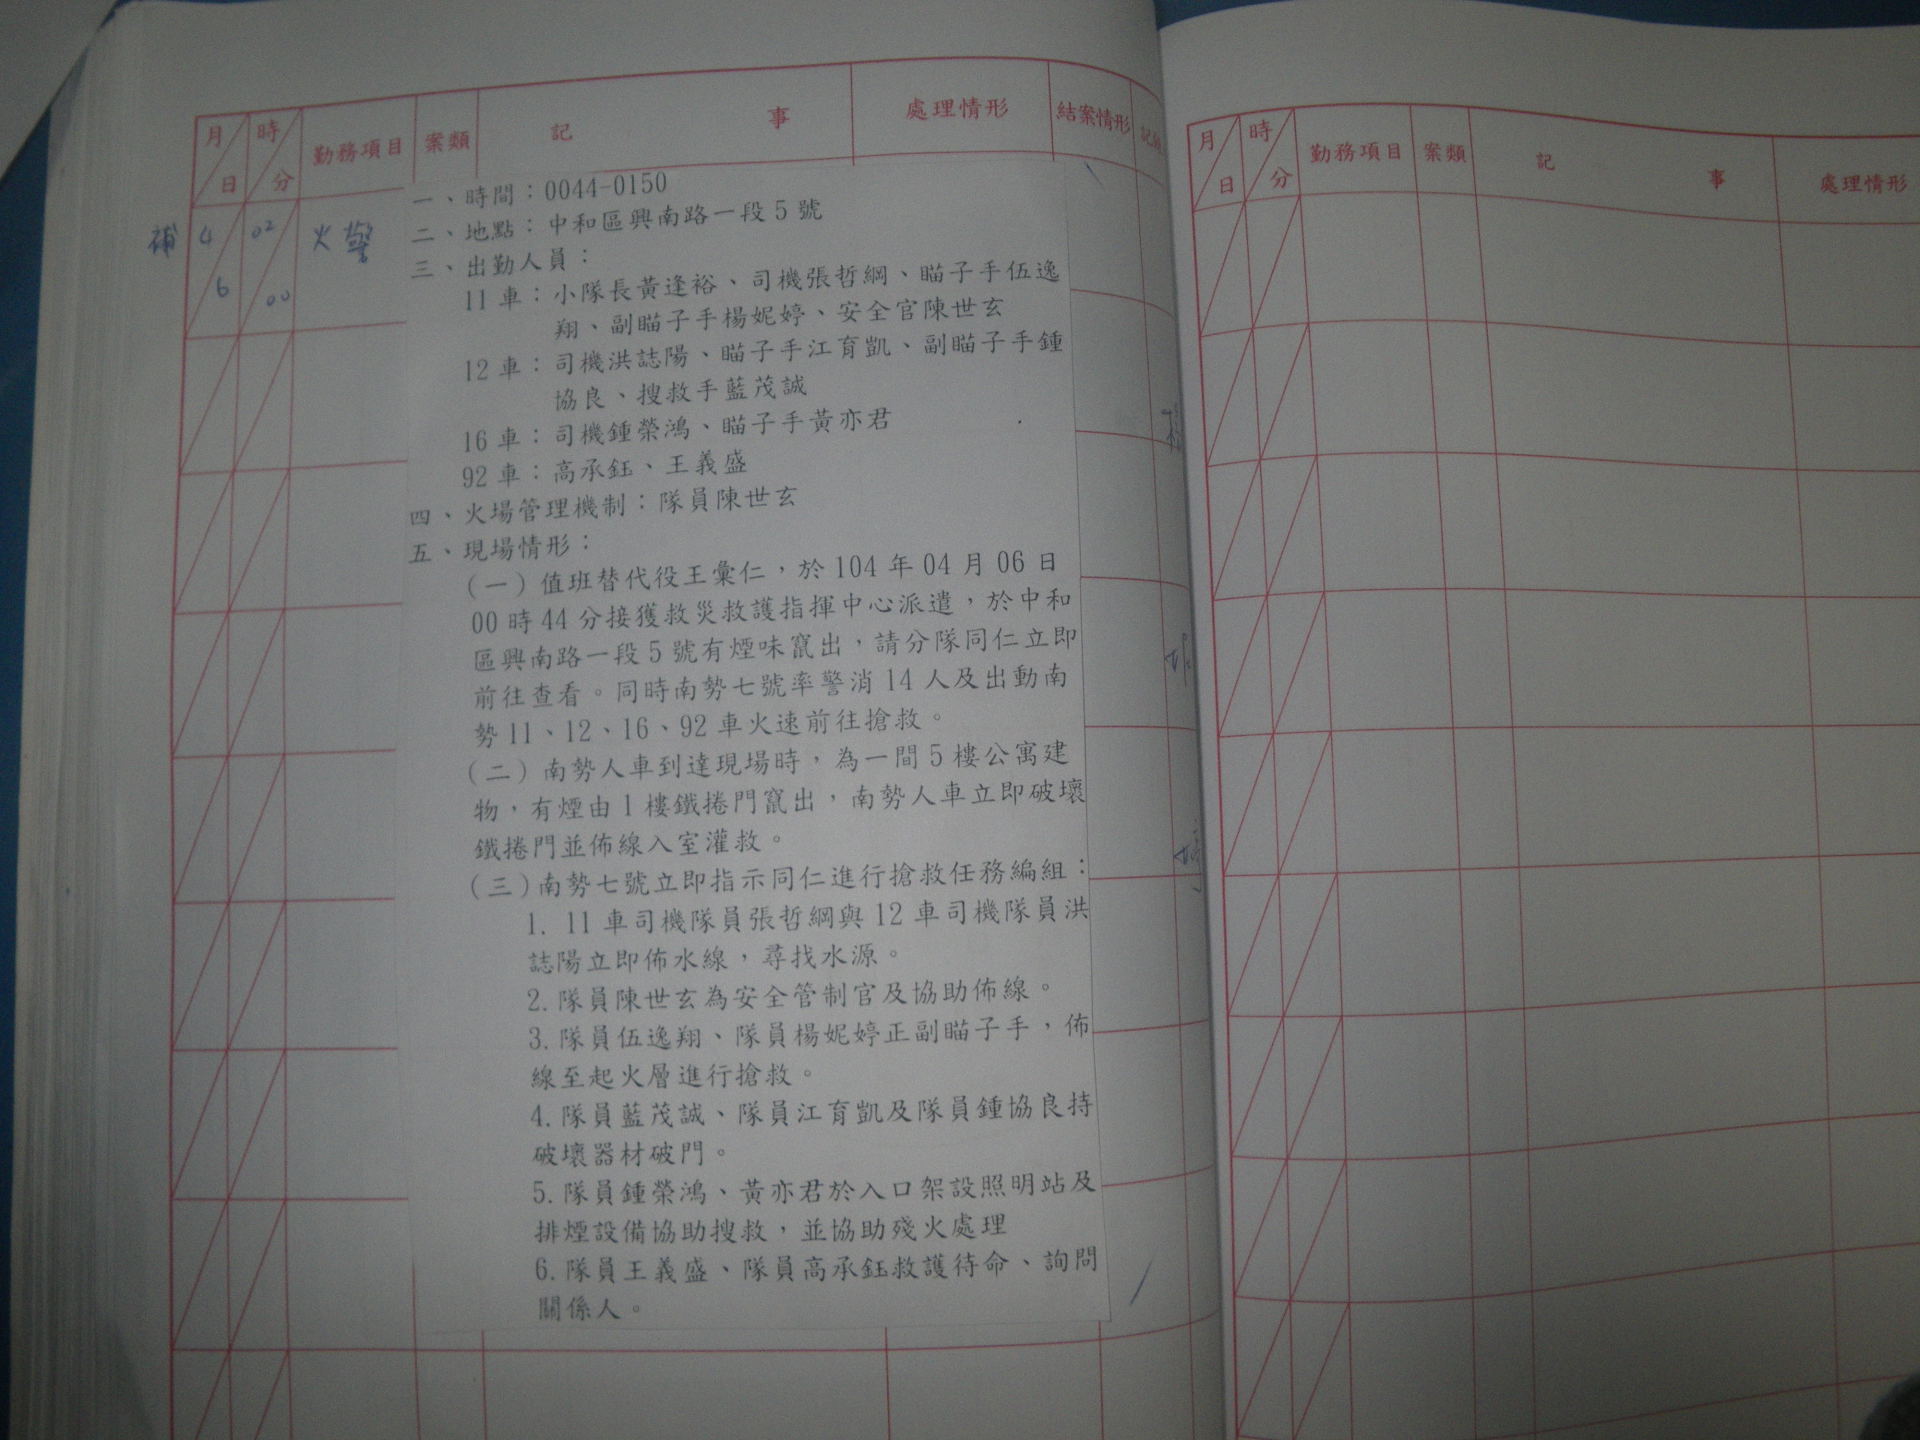 月 日 時 分 勤務項目 案類 記 事 處理情形 結案情形
補 4 6 02 00 火警
一、時間：0044-0150
二、地點：中和區興南路一段5號
三、出勤人員：
11車：小隊長黃逢裕、司機張哲綱、瞄子手伍逸
翔、副瞄子手楊妮婷、安全官陳世玄
12車：司機洪誌陽、瞄子手江育凱、副瞄子手鍾
協良、搜救手藍茂誠
16車：司機鍾榮鴻、瞄子手黃亦君
92車：高承鈺、王義盛
四、火場管理機制：隊員陳世玄
五、現場情形：
(一)值班替代役王彙仁，於104年04月06日
00時44分接獲救災救護指揮中心派遣，於中和
區興南路一段5號有煙味竄出，請分隊同仁立即
前往查看。同時南勢七號率警消14人及出動南
勢11、12、16、92車火速前往搶救。
(二)南勢人車到達現場時，為一間5樓公寓建
物，有煙由1樓鐵捲門竄出，南勢人車立即破壞
鐵捲門並佈線入室灌救。
(三)南勢七號立即指示同仁進行搶救任務編組：
1. 11車司機隊員張哲綱與12車司機隊員洪
誌陽立即佈水線，尋找水源。
2.隊員陳世玄為安全管制官及協助佈線。
3.隊員伍逸翔、隊員楊妮婷正副瞄子手，佈
線至起火層進行搶救。
4.隊員藍茂誠、隊員江育凱及隊員鍾協良持
破壞器材破門。
5.隊員鍾榮鴻、黃亦君於入口架設照明站及
排煙設備協助搜救，並協助殘火處理
6.隊員王義盛、隊員高承鈺救護待命、詢問
關係人。
月 日 時 分 勤務項目 案類 記 事 處理情形